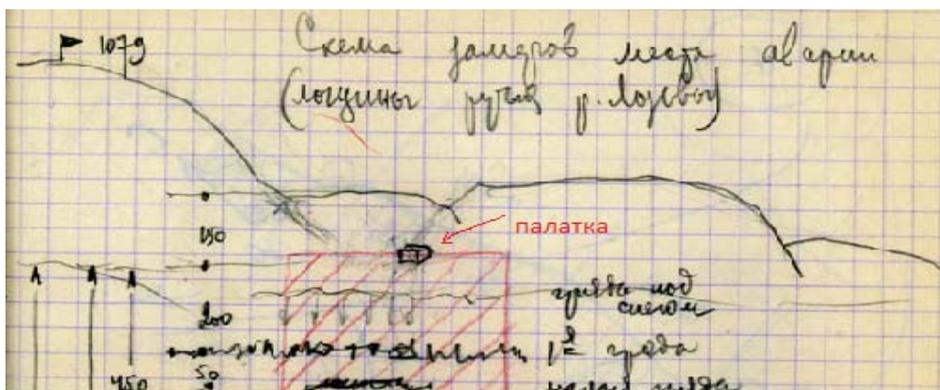 1079
Схема замеров места аварии
(лощины ручья р. Лозьвы)
палатка
150
гряда под
снегом
200
1я гряда
50
450